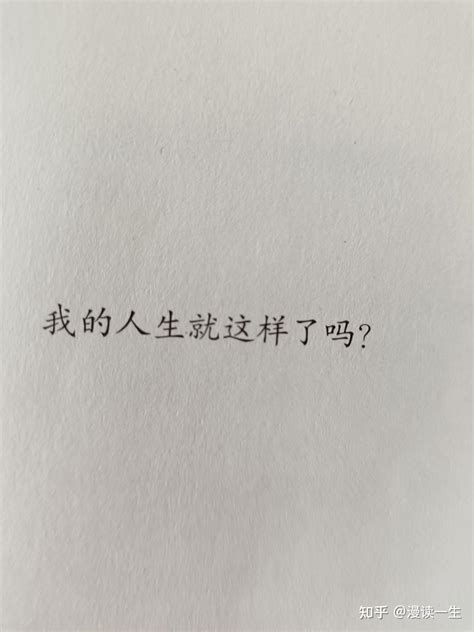 我的人生就这样了吗?
知乎 @漫读一生